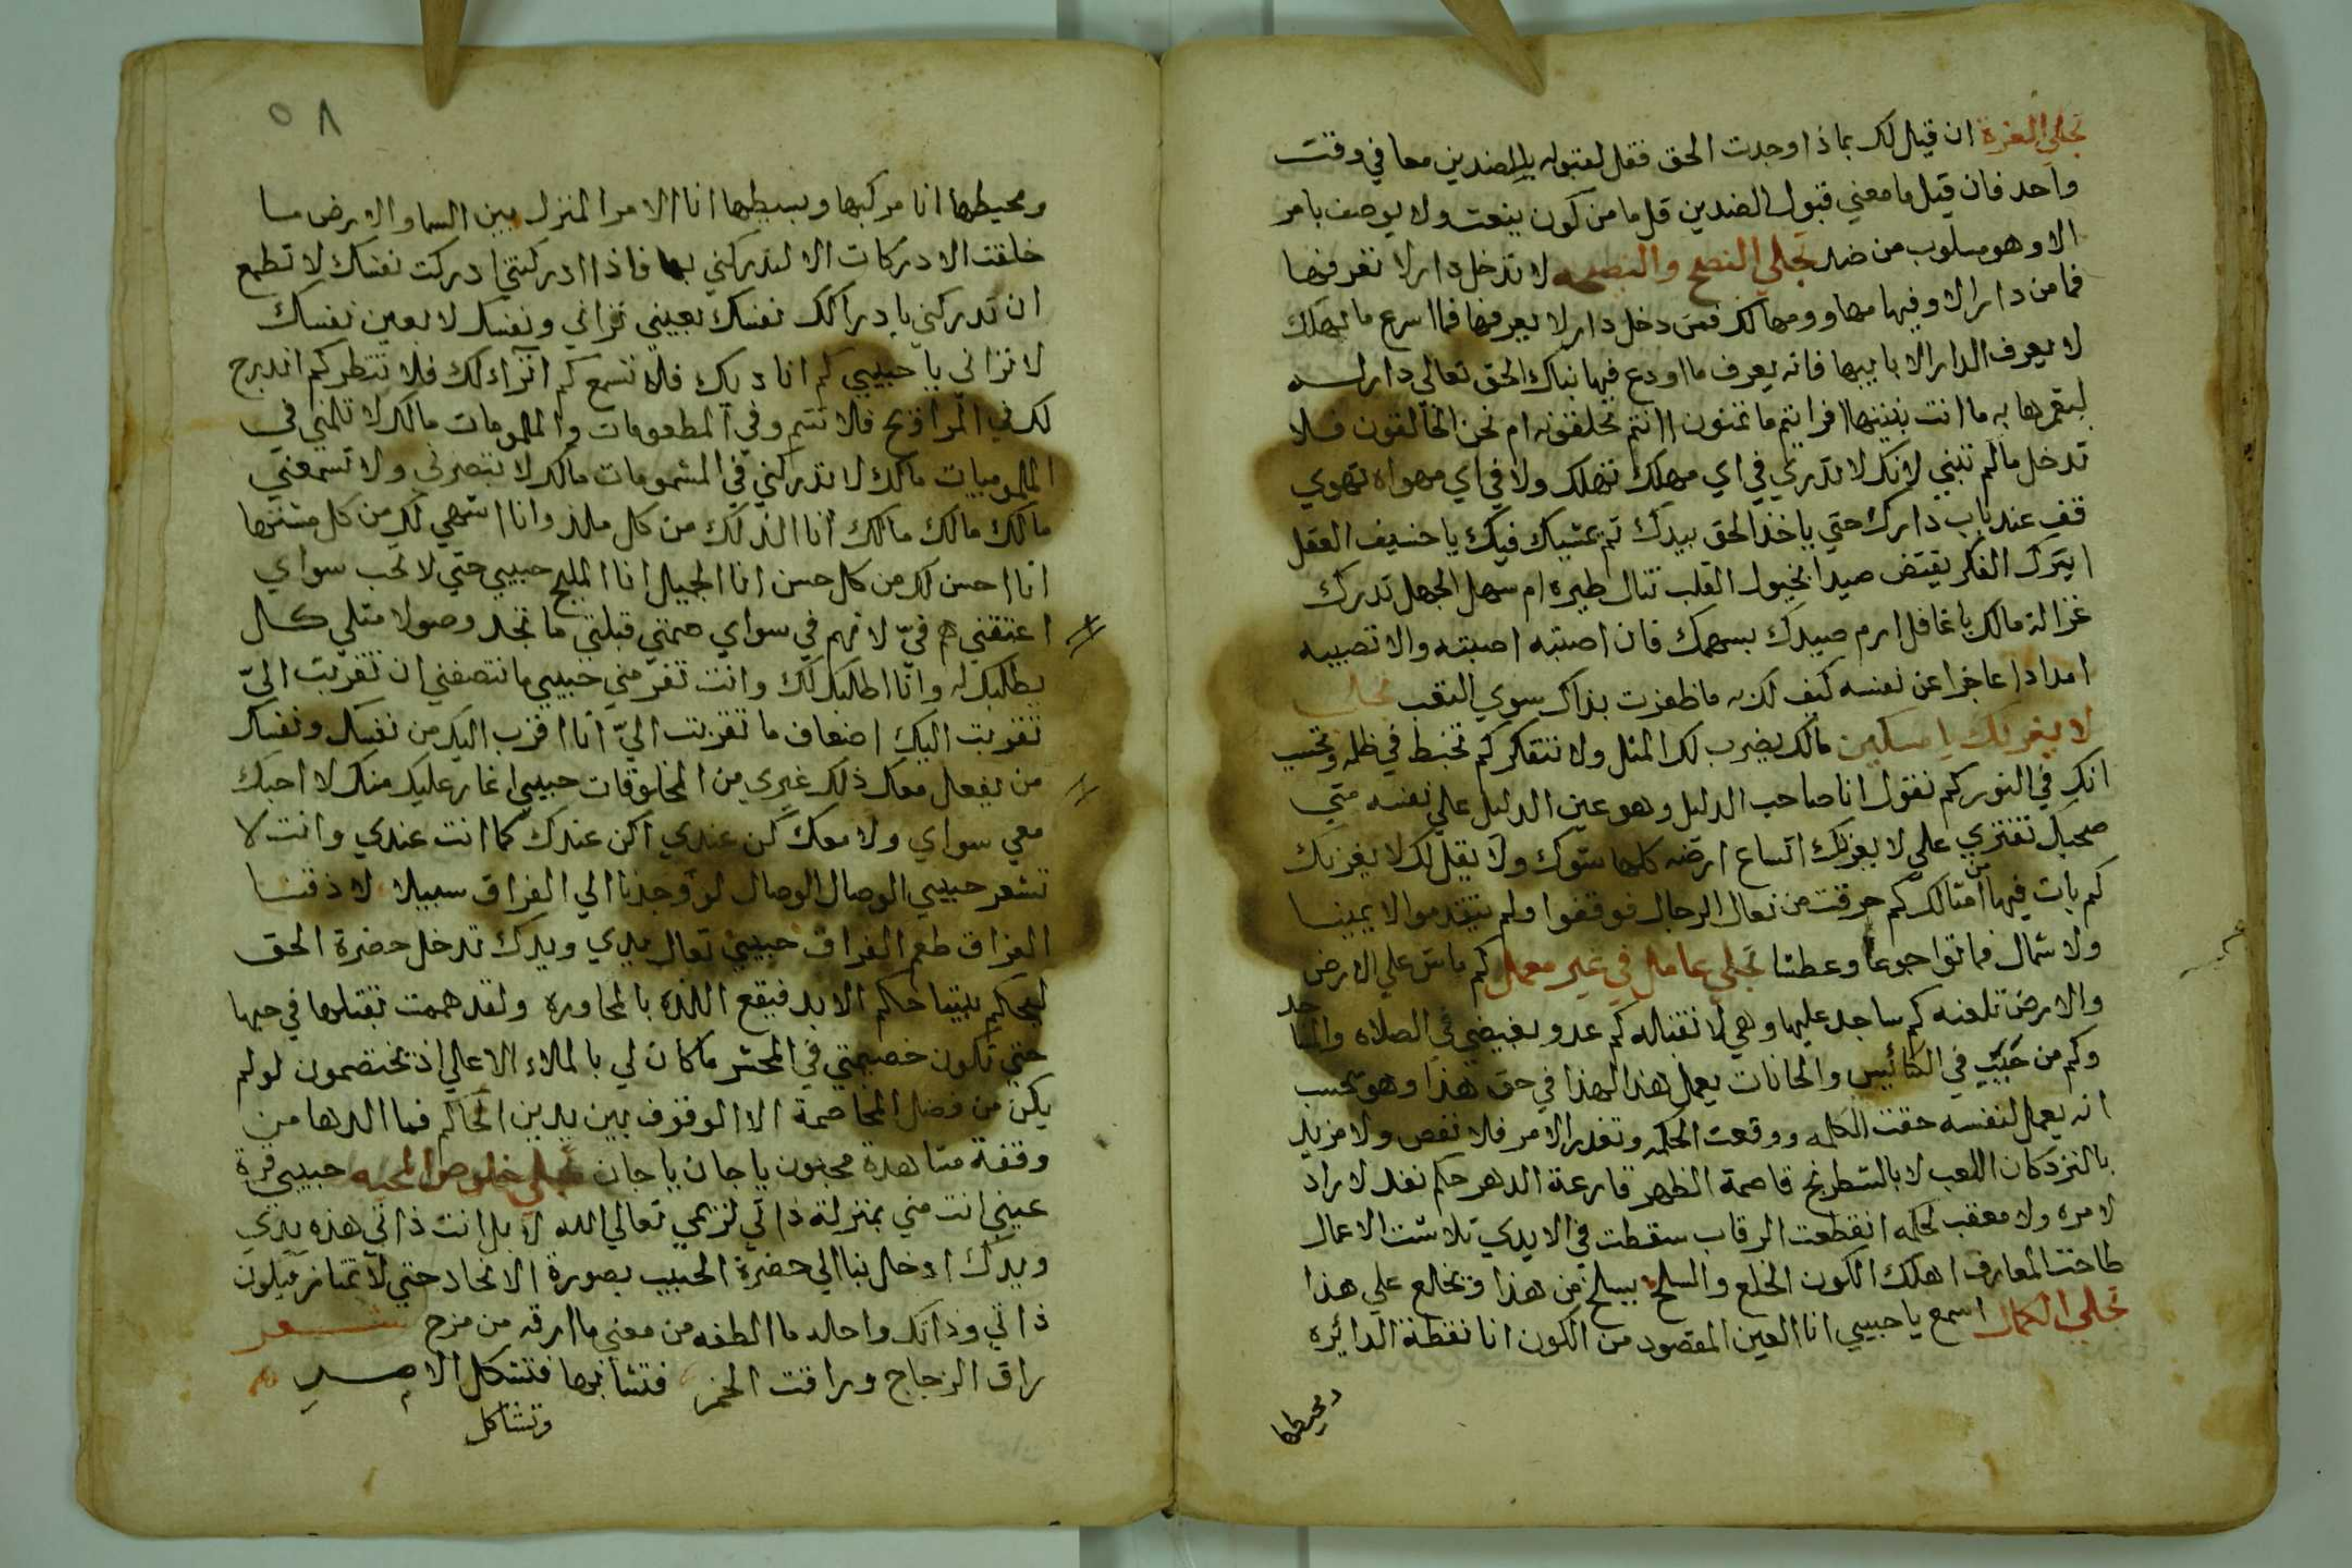 تجلي العزة ان قيل لك بماذا وجدت الحق فقل لقبوله بالضدين معا في وقت
واحد فان قيل ما معني قبول الضدين قل ما من كون ينعت ولا يوصف بامر
الا وهو مسلوب من ضد تجلي النصح والنصيحه لا تدخل دارا لا تعرفها
فما من دار الا وفيها مهاو ومهالك فمن دخل دار لا يعرفها فما اسرع ما يهلك
لا يعرف الدار الا بانيها فانه يعرف ما اودع فيها بناك الحق تعالي دار له
ليعمرها به ما انت بنيتها افرايتم ما تمنون اانتم تخلقونه ام نحن الخالقون فلا
تدخل ما لم تبني لانك لا تدري في اي مهلك تهلك ولا في اي مهواه تهوي
قف عند باب دارك حتي ياخذ الحق بيدك ثم يمشيك فيك يا خسيف العقل
ايترك الفكر تقتنص صيدا بخيول القلب تنال طيره ام سهل الجهل تدرك
غزالة مالك يا غافل ارم صيدك بسهمك فان اصبته اصبته والا تصيبه
امداد ا عاجزا عن نفسه كيف لك به ما ظفرت بذاك سوي التعب تجلي
لا يغرنك يا مسكين مالك يضرب لك المثل ولا تتفكر كم تخبط في ظلمه وتحسب
انك في النور كم تقول انا صاحب الدليل وهو عين الدليل علي نفسه متي
صحبك تفتري علي لا يغرنك اتساع ارضه كلها شوك ولا نقل لك لا يغرنك
كم بات فيها من امثالك كم حرقت من نعال الرجال فوقفوا ولم يتقدموا لا يمينا
ولا شمال فماتوا جوعا وعطشا تجلي عامل في غير معمل كم ماش علي الارض
والارض تلعنه كم ساجد عليها وهي لا تقبله كم عدو بغيضي في الصلاه والمساجد
وكم من حبيب في الكنائيس والحانات يعمل هذا لهذا في حق هذا وهو يحسب
انه يعمل لنفسه حقت الكلمه ووقعت الحكمه ونفدر الامر فلا نقص ولا مزيد
بالنرد كان اللعب لا بالشطرنج قاصمة الظهر قارعة الدهر حكم نفد لا راد
لامره ولا معقب لحكمه انقطعت الرقاب سقطت في الايدي تلاشت الاعمال
طاحت المعارف اهلك الكون الخلع والسلخ يسلخ من هذا ويخلع علي هذا
تجلي الكمال اسمع يا حبيبي انا العين المقصود من الكون انا نقطة الدائيره
ومحيطها
٥٨
ومحيطها انا مركبها وبسيطها انا الامر المنزل بين السما والارض ما
خلقت الادركات الا لتدركني بها فاذا ادركتني ادركت نفسك لا تطمع
ان تدركني بادراكك نفسك بعيني تراني ونفسك لا بعين نفسك
لا تراني يا حبيبي كم اناديك فلا تسمع كم اتراءلك فلا تنظر كم اندرج
لك في الروايح فلا تشم وفي المطعومات والملمومات مالك لا تلمني في
الملموسات مالك لا تدركني في المشمومات مالك لا تبصرني ولا تسمعني
مالك مالك مالك انا الذ لك من كل ملذ وانا اشهي لك من كل مشتها
انا احسن لك من كل حسن انا الجميل انا المليح حبيبي حتي لا تحب سواي
اعتقني هم فيّ لا تهم في سواي ضمني قبلني ما تجد وصولا مثلي كل
يطلبك له وانا اطلبك لك وانت تفر مني حبيبي ما تنصفني ان تقربت اليّ
تقربت اليك اضعاف ما تقربت اليّ انا اقرب اليك من نفسك ونفسك
من يفعل معك ذلك غيري من المخلوقات حبيبي اغار عليك منك لا احبك
معي سواي ولا معك كن عندي اكن عندك كما انت عندي وانت لا
تشعر حبيبي الوصال الوصال لو وجدنا الي الفراق سبيلا لاذقنا
الفراق طعم الفراق حبيبي تعال يدي ويدك تدخل حضرة الحق
ليحكم بيننا حكم الابد فيقع اللذه بالمحاوره ولقد هممت بقتلها في حبها
حتي تكون خصيمتي في المحشر ما كان لي بالملاء الاعلي اذ يختصمون لو لم
يكن من فضل المخاصمة الا الوقوف بين يدين الحاكم فما الذها من
وقفة مشاهدة محبون يا جان يا جان تجلي خلوص المحبه حبيبي قرة
عيني انت مني بمنزلة ذاتي لزيمي تعالي الله لا بل انت ذاتي هذه يدي
ويدك ادخل بنا الي حضرة الحبيب بصورة الاتحاد حتي لا نمتاز فيكون
ذاتي وذاتك واحد ما الطفه من معني ما ارقه من مزج شعر
راق الزجاج وراقت الخمر فتشابها فتشكل الامر
وتشاكل